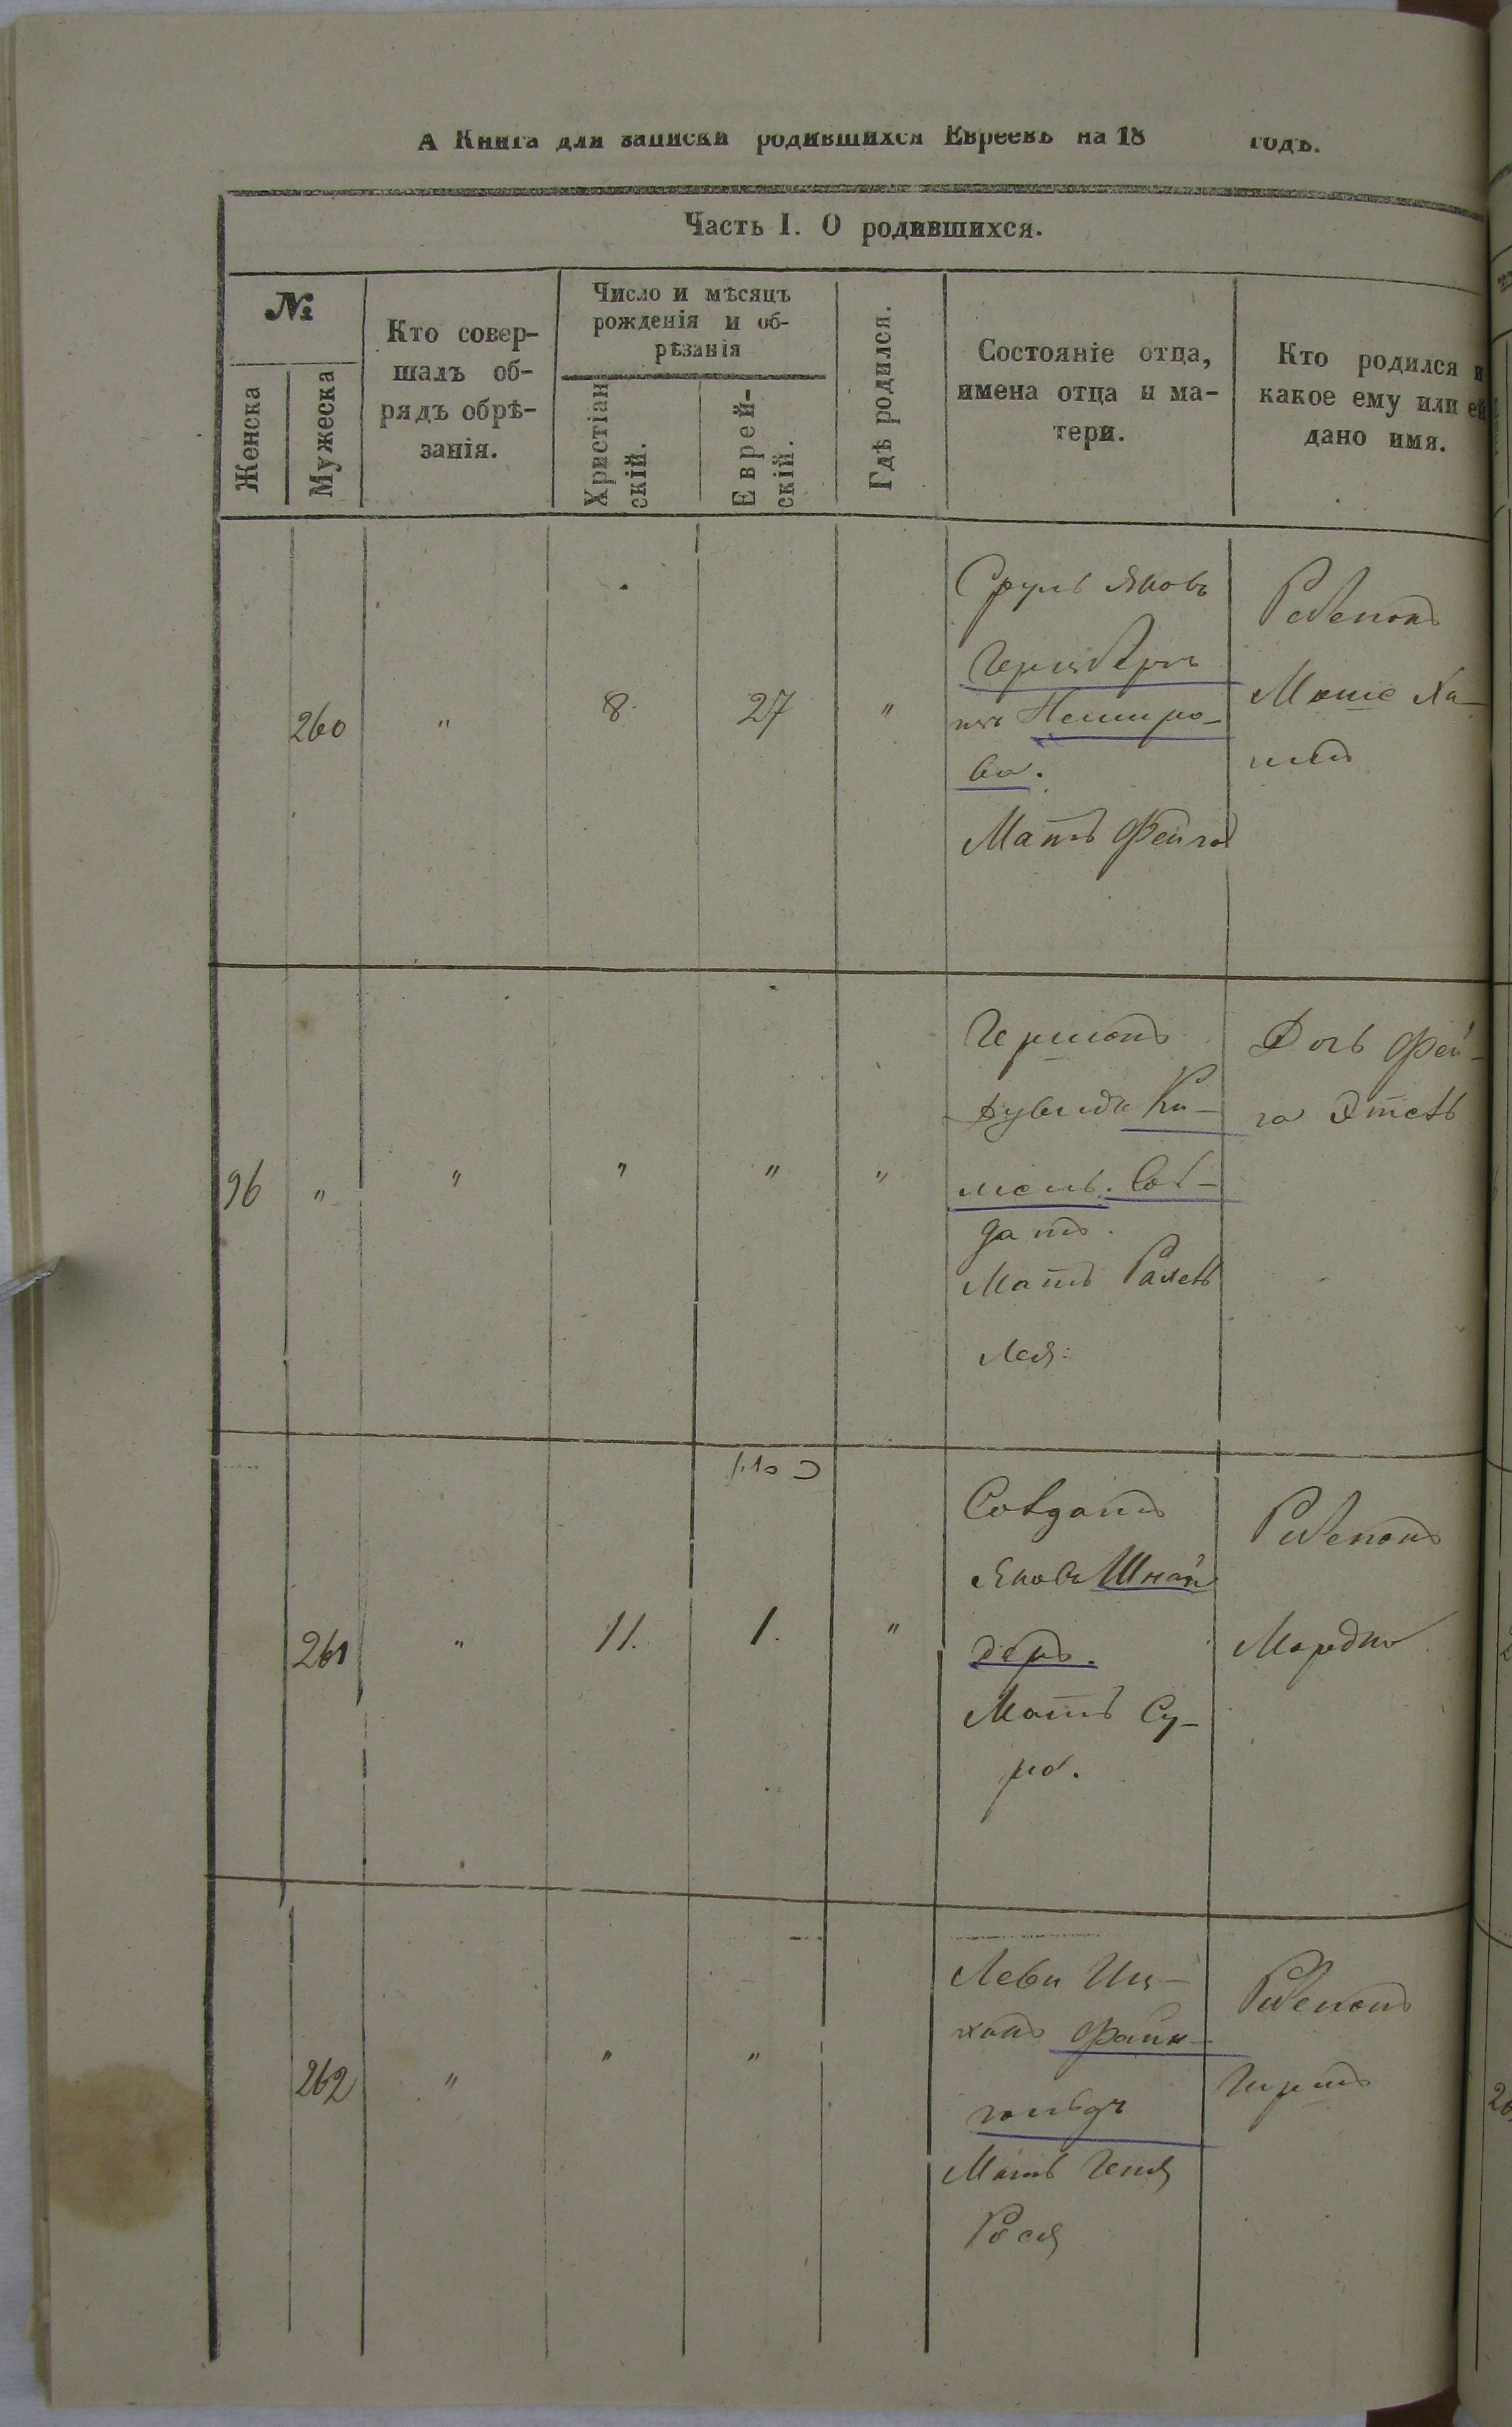 А Книга для записки родившихся Евреевъ на 18 годъ.
Часть I. О родившихся.
№
Женска
Мужеска
Кто совер-
шалъ об-
рядъ обрѣ-
занія.
Число и мѣсяцъ
рожденія и об-
рѣзанія
Христіан
скій.
Еврей-
скій.
Гдѣ родился.
Состояніе отца,
имена отца и ма-
тери.
Кто родился и
какое ему или ей
дано имя.
260
"
8.
27
"
Сруль Яковъ
Герцберг
изъ Немиро-
ва.
Мать Фейга
Ребенокъ
Моше Ха-
имъ
96
"
"
"
"
"
Гершонъ
Ки-
Сол-
датъ.
Мать Рахель
Лея.
Дочь Фей-
га Этель
261
"
11.
1.
"
Солдатъ
Яковъ Шнай
деръ.
Мать Су-
ра.
Ребенокъ
Мордко
262
"
"
"
Леви Иц-
хокъ Файн-
гольдъ
Мать Геня
Рося
Ребенокъ
Гершъ